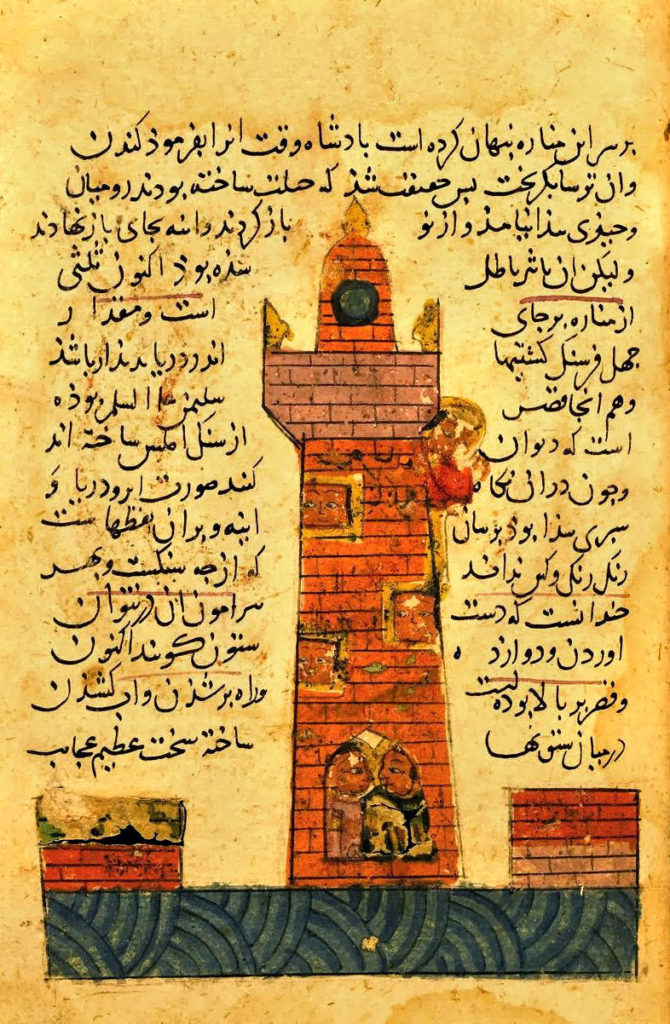 برسر این مناره پنهان کرده است بادشاه وقت انرا بفرمود کندن
وان ترسا بکریخت بس حقیقت شذ که حیلت ساخته بودند رومیان
وچیزی بیذا نیامذ و از نو باز کردند و اینه بجای باز نهادند
ولیکن ان تاثیر باطل شذه بوذ اکنون ثلثی
از مناره برجای است و مقدار
چهل فرسنک کشتیها اندر دریا بدیذار باشذ
وهم انجا قصر سلیمن علیه السلم بوذه
است که دیوان از سنک املس ساخته اند
و چون دران نکاه کنند صورت ابر و دریا و
سبزی بیذا بوذ بر سان اینه و بران نقطهاست
رنک رنک و کس نداند که از چه سنکست و بهر
که دست بیرامون ان در نتوان
اوردن و دوازده ستون کویند اکنون
وقصر بر بالا بوده است وراه بر شذن واب کشذن
در میان ستونها ساخته سخت عظیم عجایب